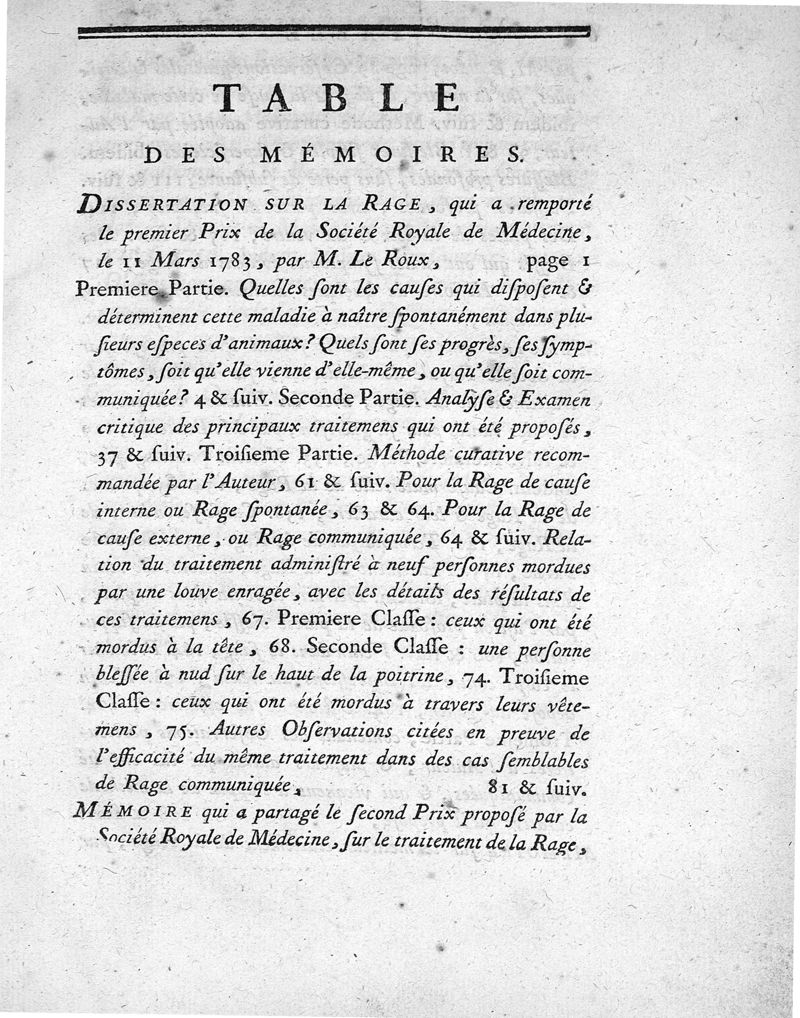 TABLE
DES MÉMOIRES.
DISSERTATION SUR LA RAGE, qui a remporté
le premier Prix de la Société Royale de Médecine,
le 11 Mars 1783, par M. Le Roux, page 1
Premiere Partie. Quelles ſont les cauſes qui diſpoſent &
déterminent cette maladie à naître ſpontanément dans plu-
ſieurs eſpeces d'animaux? Quels ſont ſes progrès, ſes ſymp-
tômes, ſoit qu'elle vienne d'elle-même, ou qu'elle ſoit com-
muniquée? 4 & ſuiv. Seconde Partie. Analyſe & Examen
critique des principaux traitemens qui ont été propoſés,
37 & ſuiv. Troiſieme Partie. Méthode curative recom-
mandée par l'Auteur, 61 & ſuiv. Pour la Rage de cauſe
interne ou Rage ſpontanée, 63 & 64. Pour la Rage de
cauſe externe, ou Rage communiquée, 64 & ſuiv. Rela-
tion du traitement adminiſtré à neuf perſonnes mordues
par une louve enragée, avec les détails des réſultats de
ces traitemens, 67. Premiere Claſſe : ceux qui ont été
mordus à la tête, 68. Seconde Claſſe : une perſonne
bleſſée à nud ſur le haut de la poitrine, 74. Troiſieme
Claſſe : ceux qui ont été mordus à travers leurs vête-
mens, 75. Autres Obſervations citées en preuve de
l'efficacité du même traitement dans des cas ſemblables
de Rage communiquée, 81 & ſuiv.
MÉMOIRE qui a partagé le ſecond Prix propoſé par la
Société Royale de Médecine, ſur le traitement de la Rage,